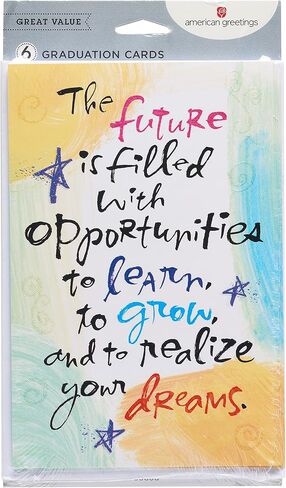 GREAT VALUE
american greetings
6 GRADUATION CARDS
The
future
is filled
with
opportunities
to learn,
to grow,
and to realize
your dreams.